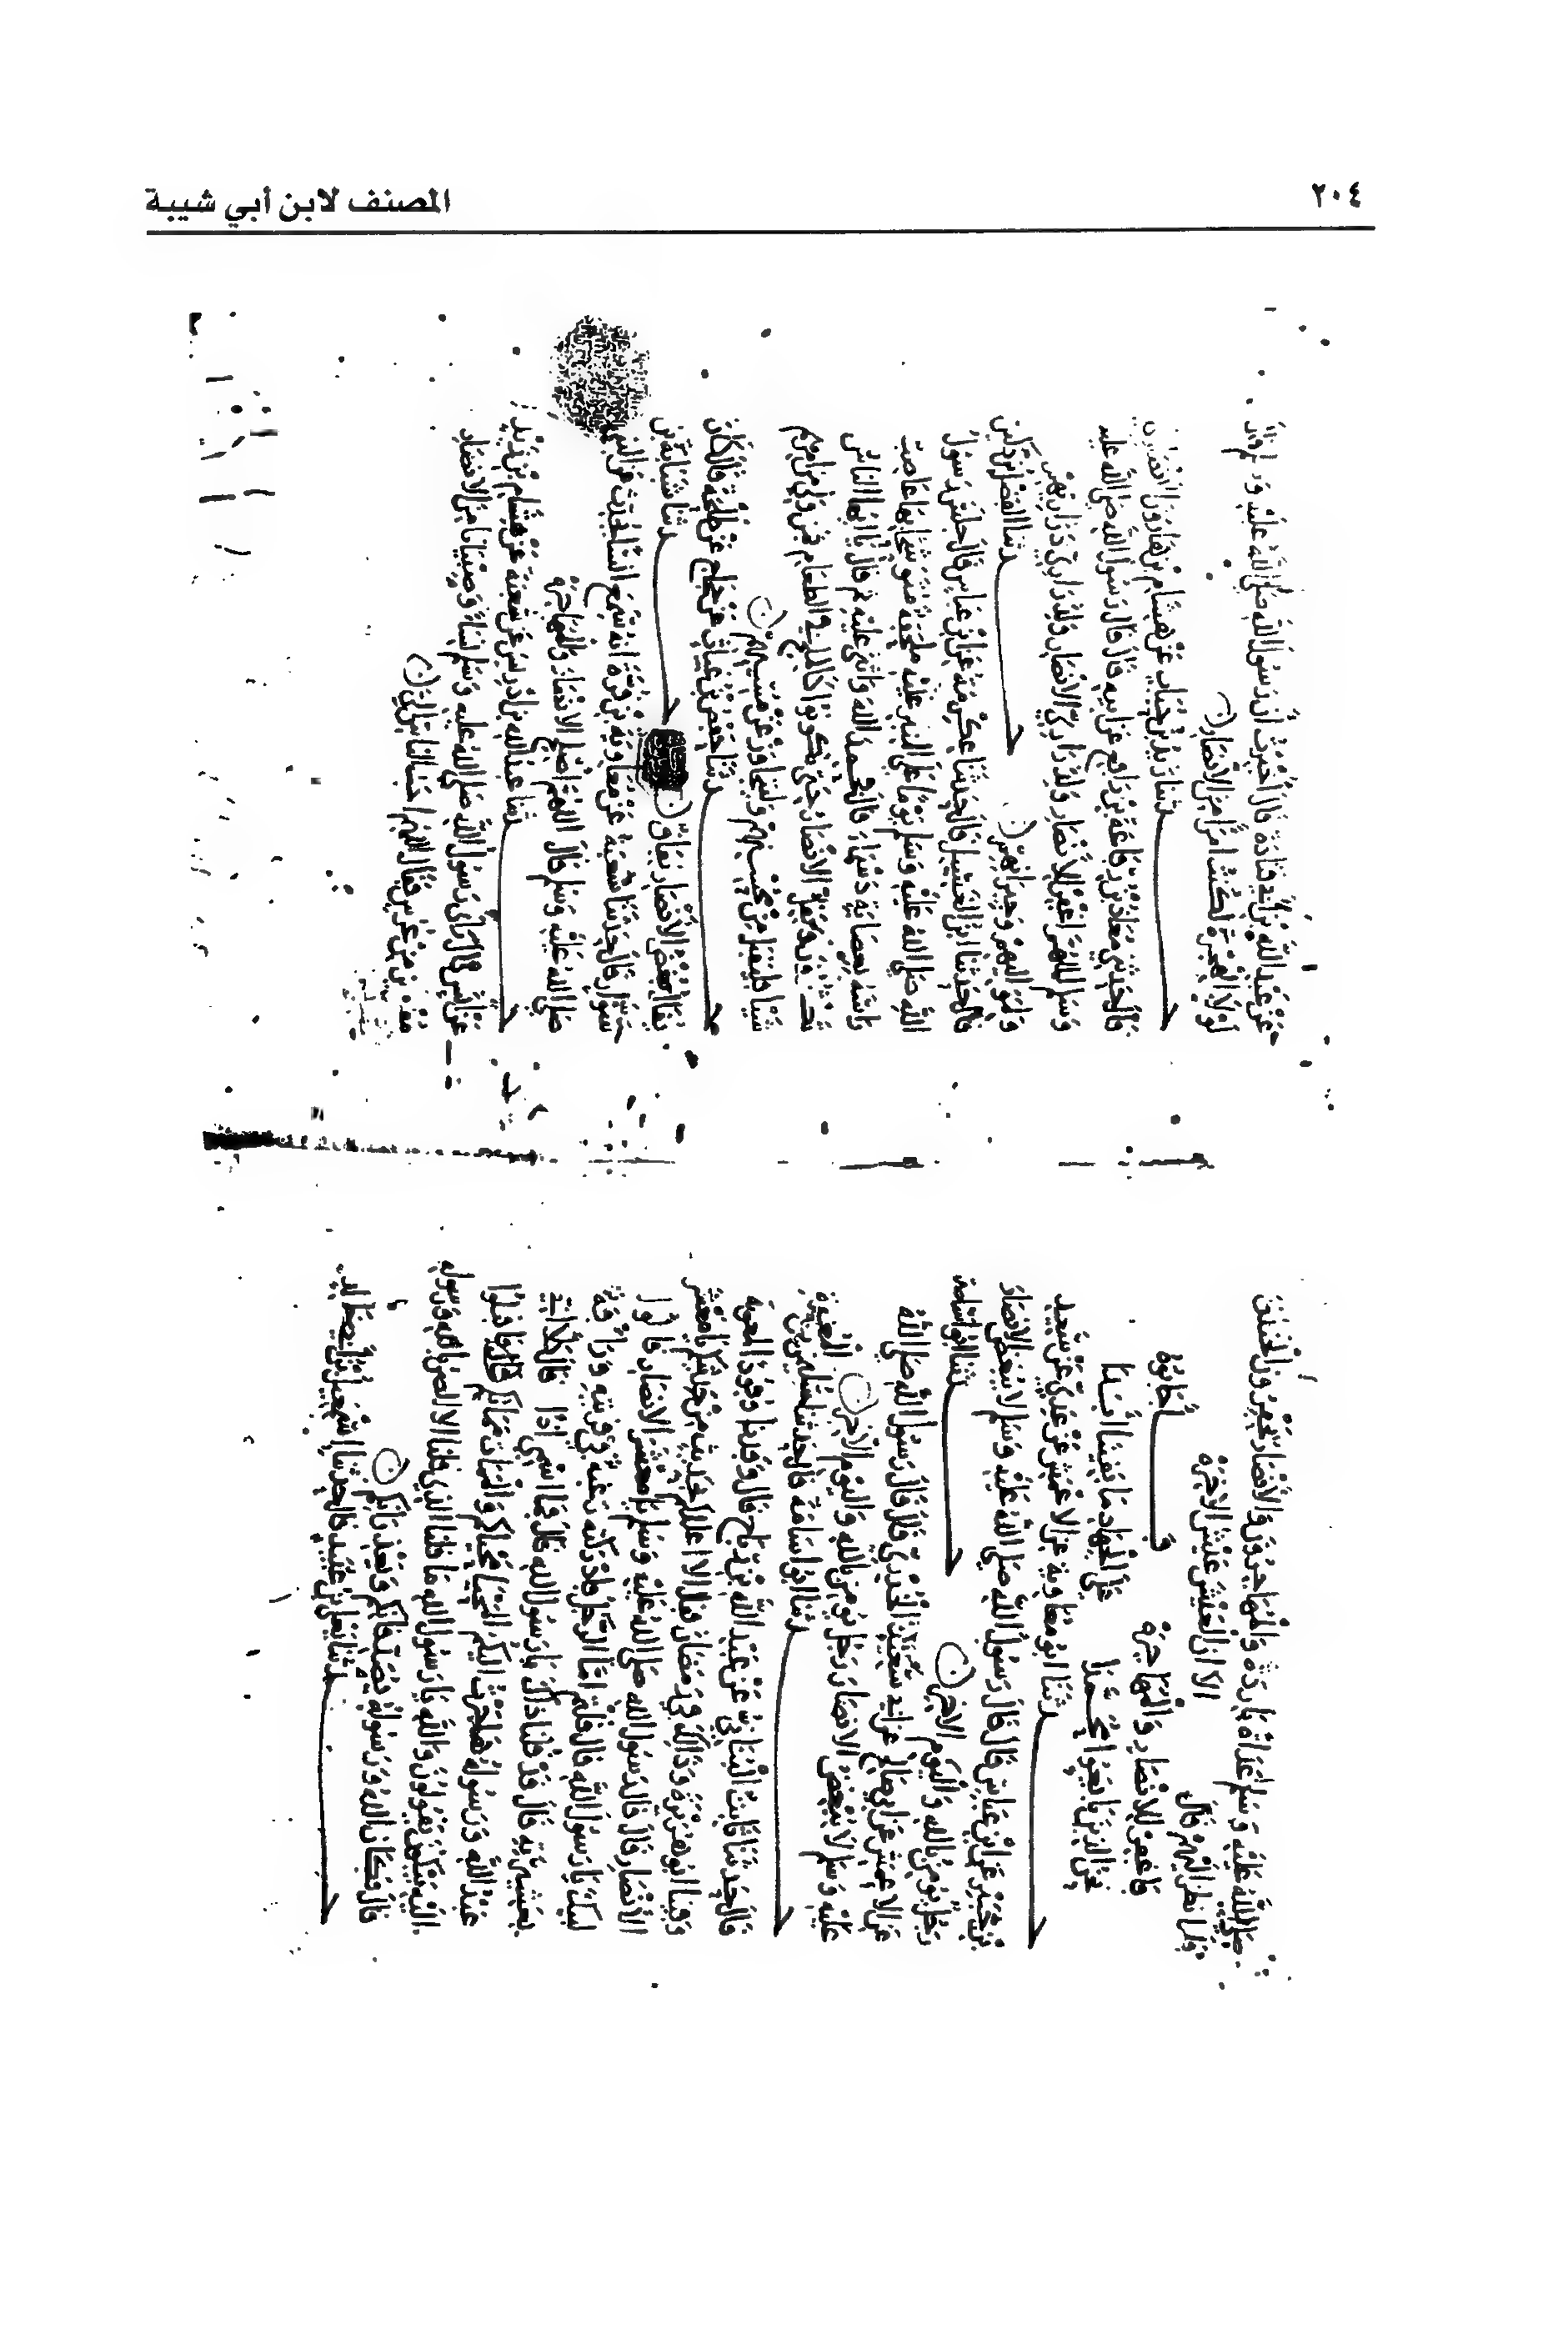 المصنف لابن أبي شيبة
٢٠٤
صلى الله عليه وسلم غداة باردة والمهاجرون والأنصار يحفرون الخندق
ولما نظر اليهم قال الا ان العيش عيش الاخرة
فاغفر للانصار والمهاجرة فاجابوه
نحن الذين بايعوا محمدا على الجهاد ما بقينا أبدا
حدثنا ابو معاوية عن الاعمش عن عدي عن سعيد
بن جبير عن ابن عباس قال قال رسول الله صلى الله عليه وسلم لا يبغض الانصار
رجل يؤمن بالله واليوم الاخر حدثنا ابو اسامة
عن الاعمش عن ابي صالح عن ابي سعيد الخدري قال قال رسول الله صلى الله
عليه وسلم لا يبغض الانصار رجل يؤمن بالله واليوم الاخر
حدثنا ابو اسامة قال حدثنا سليمن بن المغيرة
قال حدثنا ثابت البناني عن عبد الله بن رباح قال وفدنا وفود الى معوية
وفينا ابو هريرة وذلك في رمضان فقال الا اعللكم بحديث من حديثكم يا معشر
الأنصار قال قال رسول الله صلى الله عليه وسلم يا معشر الانصار قالوا
لبيك يا رسول الله قال قلتم اما الرجل فادركته رغبة في قريته ورافة
بعشيرته قال قد قلنا ذاك يا رسول الله قال فما اسمي اذا قال كلا اني
عبد الله ورسوله هاجرت اليكم المحيا محياكم والممات مماتكم قال فاقبلوا
اليه يبكون يقولون والله يا رسول الله ما قلنا الذي قلنا الا الضن بالله ورسوله
قال فان الله ورسوله يصدقانكم ويعذرانكم
حدثنا يعلى بن عبيد قال حدثنا اسمعيل
عن عبد الله بن ابي قتادة قال أخبرت أن رسول الله صلى الله عليه وسلم قال
لولا الهجرة لكنت امرأ من الانصار
حدثنا زيد بن حباب عن هشام بن هارون الأنصاري
قال حدثني معاذ بن رفاعة بن رافع عن ابيه قال قال رسول الله صلى الله عليه
وسلم اللهم اغفر للأنصار ولذراري الانصار ولذراري ذراريهم
ولمواليهم وجيرانهم حدثنا الفضل بن دكين
قال حدثنا ابن الغسيل قال حدثنا عكرمة عن ابن عباس قال جلس رسول
الله صلى الله عليه وسلم يوما على المنبر عليه ملحفة متوشحا بها عاصب
راسه بعصابة دسماء قال فحمد الله واثنى عليه ثم قال يا ايها الناس
تكثرون ويقل الانصار حتى يكونوا كالملح في الطعام فمن ولي من امرهم
شيئا فليقبل من محسنهم وليتجاوز عن مسيئهم
حدثنا حفص بن غياث عن حجاج عن طلحة قال كان
يقال بغض الأنصار نفاق حدثنا شبابة بن
سوار قال حدثنا شعبة عن معاوية بن قرة انه سمع انسا يحدث عن النبي
صلى الله عليه وسلم قال اللهم اصلح الانصار والمهاجرة
حدثنا عبد الله بن ادريس عن شعبة عن هشام بن زيد
عن انس قال راى رسول الله صلى الله عليه وسلم نساء وصبيانا من الانصار
مقبلين من عرس فقال اللهم احب الناس الي